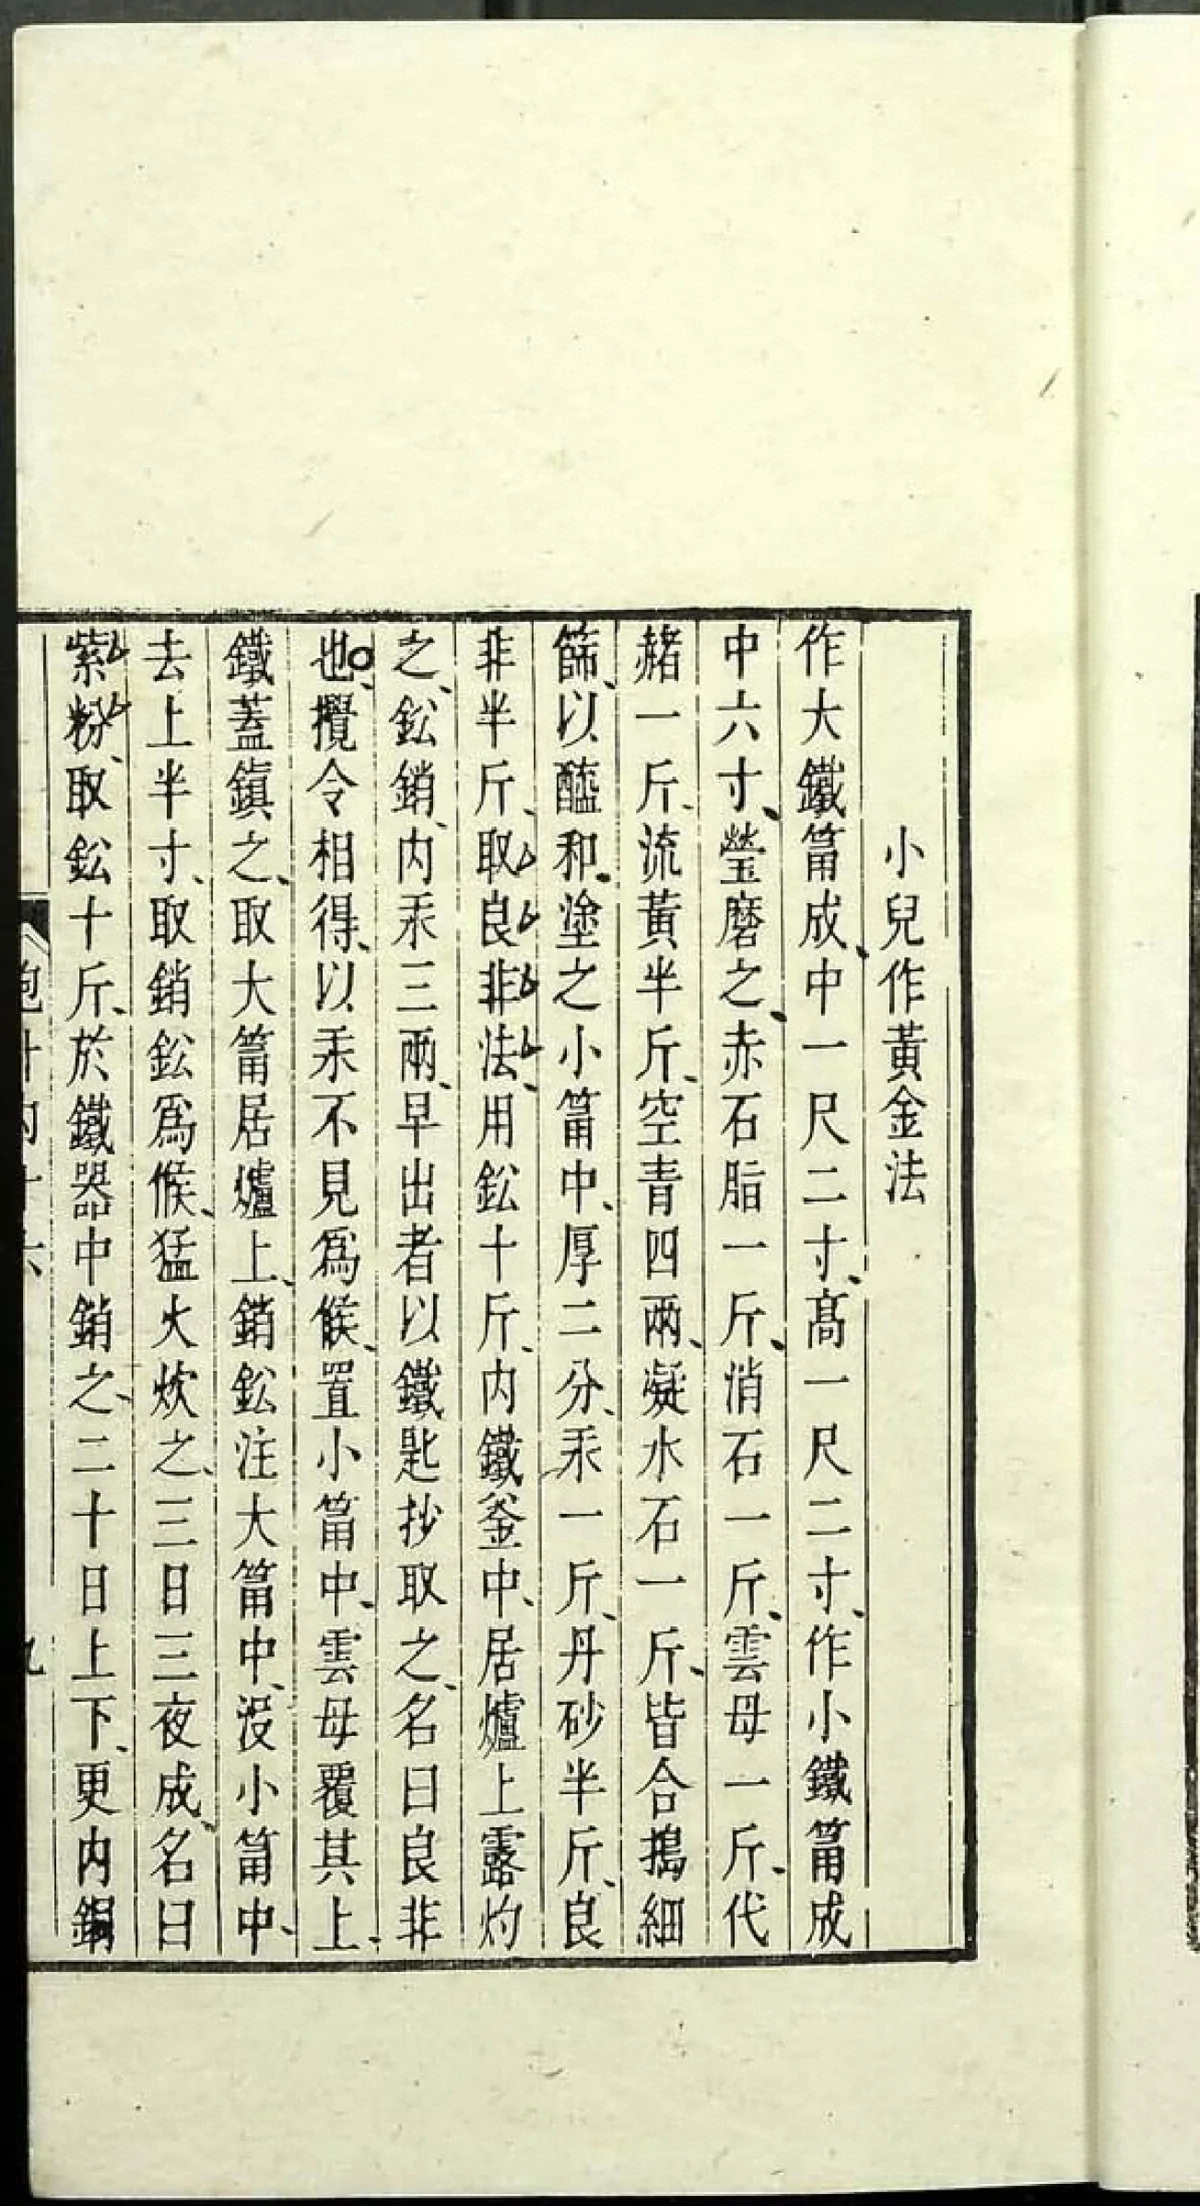 小兒作黃金法
作大鐵筩成、中一尺二寸、髙一尺二寸、作小鐵筩成
中六寸、瑩磨之、赤石脂一斤、消石一斤、雲母一斤、代
赭一斤、流黃半斤、空青四兩、凝水石一斤、皆合搗細
篩、以醯和、塗之小筩中、厚二分、汞一斤、丹砂半斤、良
非半斤、取良非法、用鈆十斤、内鐵釜中、居爐上露灼
之、鈆銷、内汞三兩、早出者以鐵匙抄取之、名曰良非
也、攪令相得、以汞不見爲候、置小筩中、雲母覆其上、
鐵蓋鎮之、取大筩居爐上、銷鈆注大筩中、没小筩中、
去上半寸、取銷鈆爲候、猛火炊之、三日三夜成、名曰
紫粉、取鈆十斤、於鐵器中銷之、二十日上下、更内銅